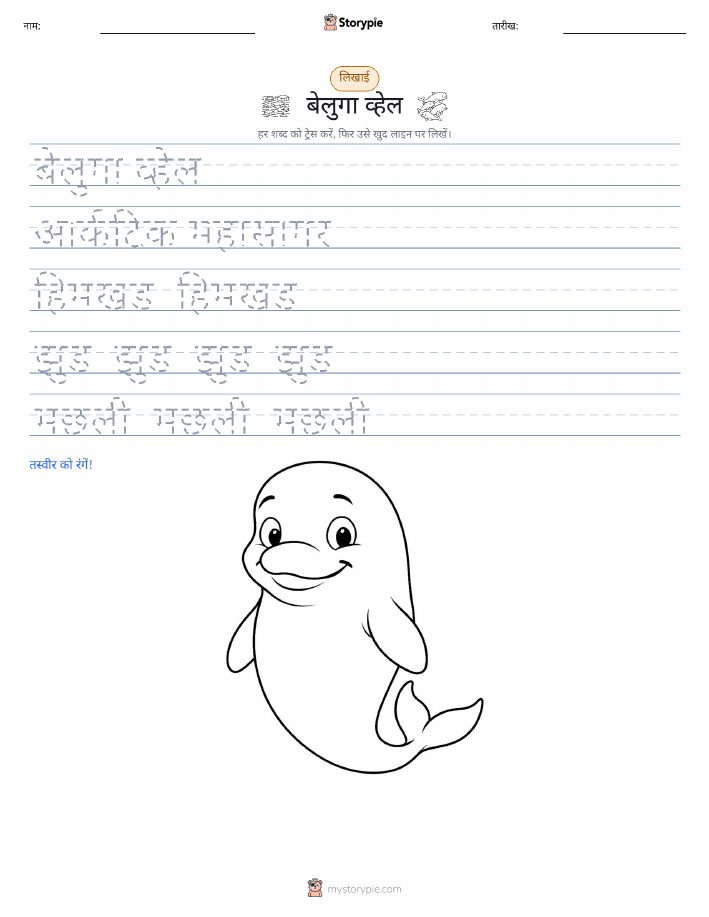 नाम:
Storypie
तारीख:
लिखाई
बेलुगा व्हेल
हर शब्द को ट्रेस करें, फिर उसे खुद लाइन पर लिखें।
बेलुगा व्हेल
आर्कटिक महासागर
हिमखंड हिमखंड
झुंड झुंड झुंड झुंड
मछली मछली मछली
तस्वीर को रंगें!
mystorypie.com